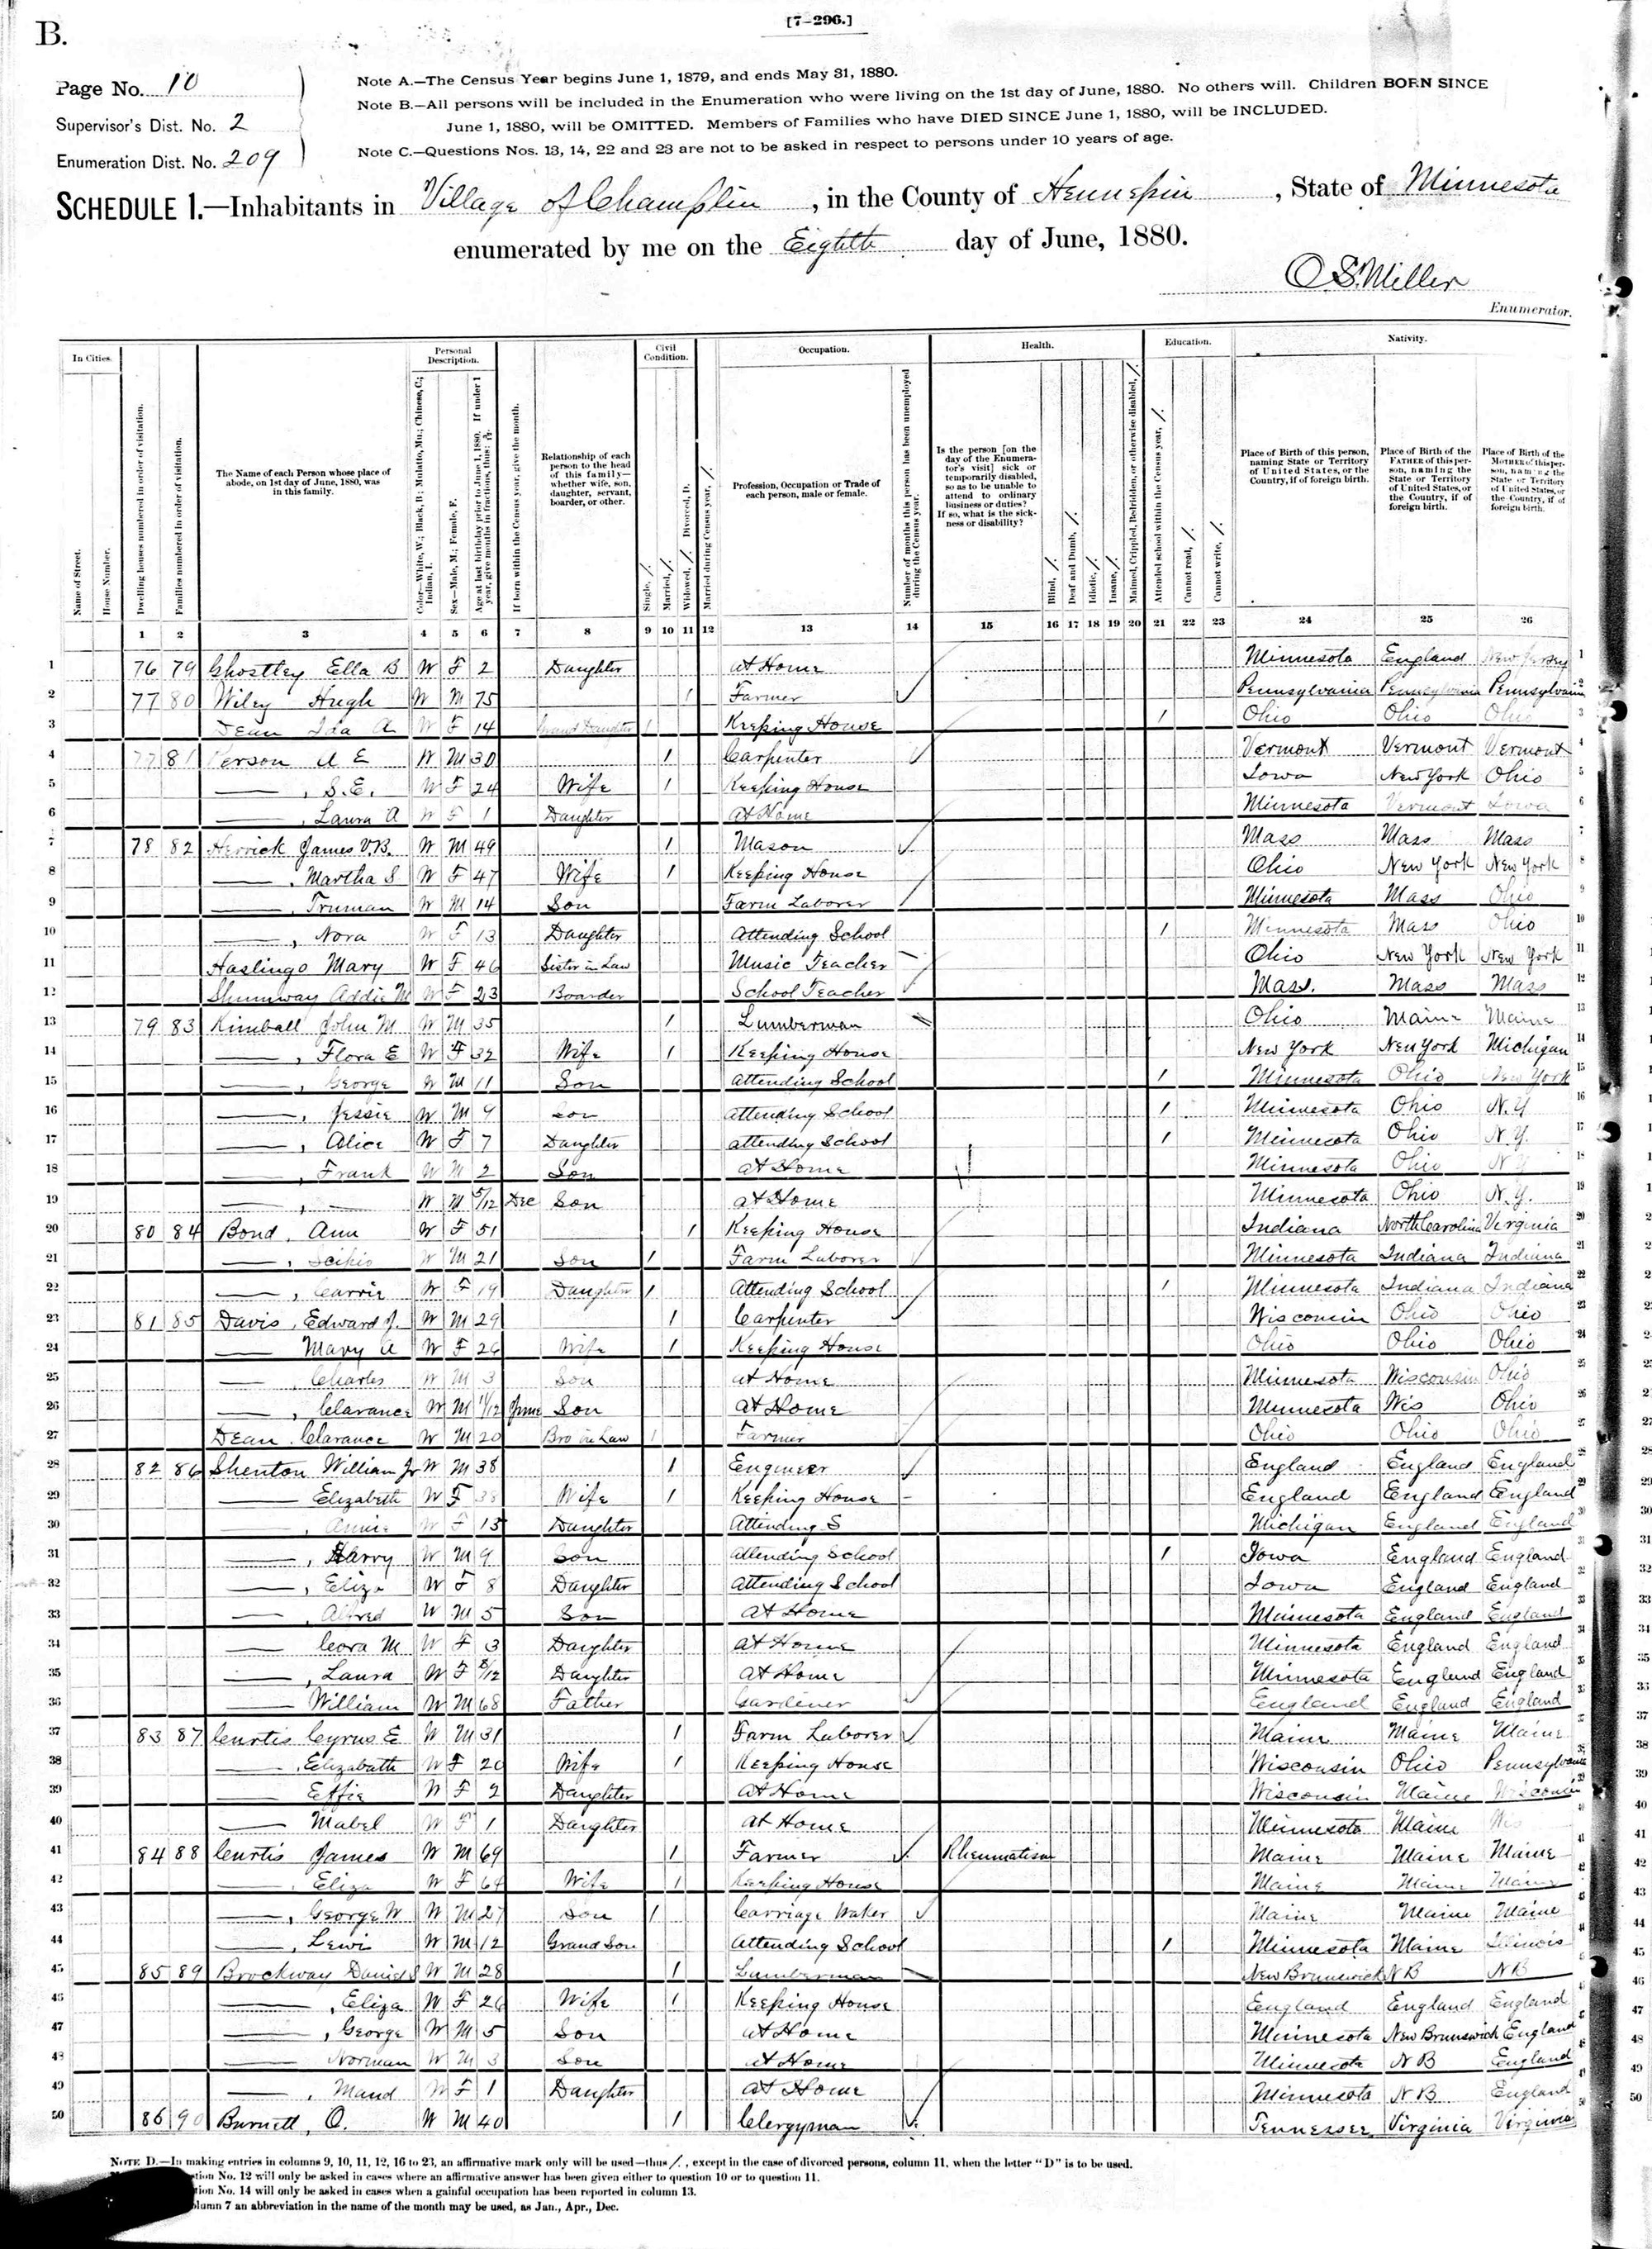 B.
[7-296.]
Page No. 10
Supervisor's Dist. No. 2
Enumeration Dist. No. 209
Note A.—The Census Year begins June 1, 1879, and ends May 31, 1880.
Note B.—All persons will be included in the Enumeration who were living on the 1st day of June, 1880. No others will. Children BORN SINCE
June 1, 1880, will be OMITTED. Members of Families who have DIED SINCE June 1, 1880, will be INCLUDED.
Note C.—Questions Nos. 13, 14, 22 and 23 are not to be asked in respect to persons under 10 years of age.
SCHEDULE 1.—Inhabitants in Village of Champlin, in the County of Hennepin, State of Minnesota
enumerated by me on the Eighth day of June, 1880.
O.S. Miller
Enumerator.
In Cities. Personal Description. Civil Condition. Occupation. Health. Education. Nativity.
Name of Street.
House Number.
Dwelling houses numbered in order of visitation.
Families numbered in order of visitation.
The Name of each Person whose place of abode, on 1st day of June, 1880, was in this family.
Color—White, W.; Black, B.; Mulatto, Mu.; Chinese, C.; Indian, I.
Sex—Male, M.; Female, F.
Age at last birthday prior to June 1, 1880. If under 1 year, give months in fractions, thus: 3/12.
If born within the Census year, give the month.
Relationship of each person to the head of this family—whether wife, son, daughter, servant, boarder, or other.
Single, /.
Married, /.
Widowed, /. Divorced, D.
Married during Census year, /.
Profession, Occupation or Trade of each person, male or female.
Number of months this person has been unemployed during the Census year.
Is the person [on the day of the Enumerator's visit] sick or temporarily disabled, so as to be unable to attend to ordinary business or duties? If so, what is the sickness or disability?
Blind, /.
Deaf and Dumb, /.
Idiotic, /.
Insane, /.
Maimed, Crippled, Bedridden, or otherwise disabled, /.
Attended school within the Census year, /.
Cannot read, /.
Cannot write, /.
Place of Birth of this person, naming State or Territory of United States, or the Country, if of foreign birth.
Place of Birth of the FATHER of this person, naming the State or Territory of United States, or the Country, if of foreign birth.
Place of Birth of the MOTHER of this person, naming the State or Territory of United States, or the Country, if of foreign birth.
1 2 3 4 5 6 7 8 9 10 11 12 13 14 15 16 17 18 19 20 21 22 23 24 25 26
1 76 79 Ghostley Ella B W F 2 Daughter at Home Minnesota England New Jersey 1
2 77 80 Wiley Hugh W M 75 / Farmer Pennsylvania Pennsylvania Pennsylvania 2
3 Dean Ida A W F 14 Grand Daughter / Keeping House / Ohio Ohio Ohio 3
4 77 81 Person A E W M 30 / Carpenter Vermont Vermont Vermont 4
5 —, S.E. W F 24 Wife / Keeping House Iowa New York Ohio 5
6 —, Laura A W F 1 Daughter at Home Minnesota Vermont Iowa 6
7 78 82 Herrick James V.B. W M 49 / Mason Mass Mass Mass 7
8 —, Martha S W F 47 Wife / Keeping House Ohio New York New York 8
9 —, Truman W M 14 Son Farm Laborer Minnesota Mass Ohio 9
10 —, Nora W F 13 Daughter Attending School / Minnesota Mass Ohio 10
11 Haslingo Mary W F 46 Sister in Law Music Teacher Ohio New York New York 11
12 Shumway Addie M W F 23 Boarder School Teacher Mass. Mass Mass 12
13 79 83 Kimball John M W M 35 / Lumberman Ohio Maine Maine 13
14 —, Flora E W F 32 Wife / Keeping House New York New York Michigan 14
15 —, George W M 11 Son Attending School / Minnesota Ohio New York 15
16 —, Jessie W M 9 Son Attending School / Minnesota Ohio N.Y 16
17 —, Alice W F 7 Daughter attending School / Minnesota Ohio N.Y. 17
18 —, Frank W M 2 Son at Home Minnesota Ohio N.Y 18
19 —, — W M 5/12 Dec Son at Home Minnesota Ohio N.Y. 19
20 80 84 Bond, Ann W F 51 / Keeping House Indiana North Carolina Virginia 20
21 —, Scipio W M 21 Son / Farm Laborer Minnesota Indiana Indiana 21
22 —, Carrie W F 19 Daughter / Attending School / Minnesota Indiana Indiana 22
23 81 85 Davis, Edward J. W M 29 / Carpenter Wisconsin Ohio Ohio 23
24 — Mary A W F 26 Wife / Keeping House Ohio Ohio Ohio 24
25 —, Charles W M 3 Son at Home Minnesota Wisconsin Ohio 25
26 —, Clarance W M 11/12 June Son at Home Minnesota Wis Ohio 26
27 Dean, Clarance W M 20 Bro in Law / Farmer Ohio Ohio Ohio 27
28 82 86 Shenton William Jr W M 38 / Engineer England England England 28
29 — Elizabeth W F 38 Wife / Keeping House England England England 29
30 —, Annie W F 13 Daughter Attending S Michigan England England 30
31 —, Harry W M 9 Son Attending School / Iowa England England 31
32 —, Eliza W F 8 Daughter Attending School Iowa England England 32
33 —, Alfred W M 5 Son at Home Minnesota England England 33
34 — Cora M W F 3 Daughter at Home Minnesota England England 34
35 —, Laura W F 8/12 Daughter at Home Minnesota England England 35
36 — William W M 68 Father Gardener England England England 36
37 83 87 Curtis Cyrus E W M 31 / Farm Laborer Maine Maine Maine 37
38 —, Elizabeth W F 20 Wife / Keeping House Wisconsin Ohio Pennsylvania 38
39 — Effie W F 2 Daughter at Home Wisconsin Maine Wisconsin 39
40 — Mabel W F 1 Daughter at Home Minnesota Maine Wis 40
41 84 88 Curtis James W M 69 / Farmer Rheumatism Maine Maine Maine 41
42 —, Eliza W F 64 Wife / Keeping House Maine Maine Maine 42
43 —, George W W M 27 Son / Carriage Maker Maine Maine Maine 43
44 —, Lewis W M 12 Grand Son Attending School / Minnesota Maine Illinois 44
45 85 89 Brockway Daniel S W M 28 / Lumberman New Brunswick N B N B 45
46 —, Eliza W F 26 Wife / Keeping House England England England 46
47 —, George W M 5 Son at Home Minnesota New Brunswick England 47
48 — Norman W M 3 Son at Home Minnesota N B England 48
49 —, Maud W F 1 Daughter at Home Minnesota N B England 49
50 86 90 Burnett, O. W M 40 / Clergyman Tennessee Virginia Virginia 50
NOTE D.—In making entries in columns 9, 10, 11, 12, 16 to 23, an affirmative mark only will be used—thus /, except in the case of divorced persons, column 11, when the letter "D" is to be used.
tion No. 12 will only be asked in cases where an affirmative answer has been given either to question 10 or to question 11.
tion No. 14 will only be asked in cases when a gainful occupation has been reported in column 13.
olumn 7 an abbreviation in the name of the month may be used, as Jan., Apr., Dec.